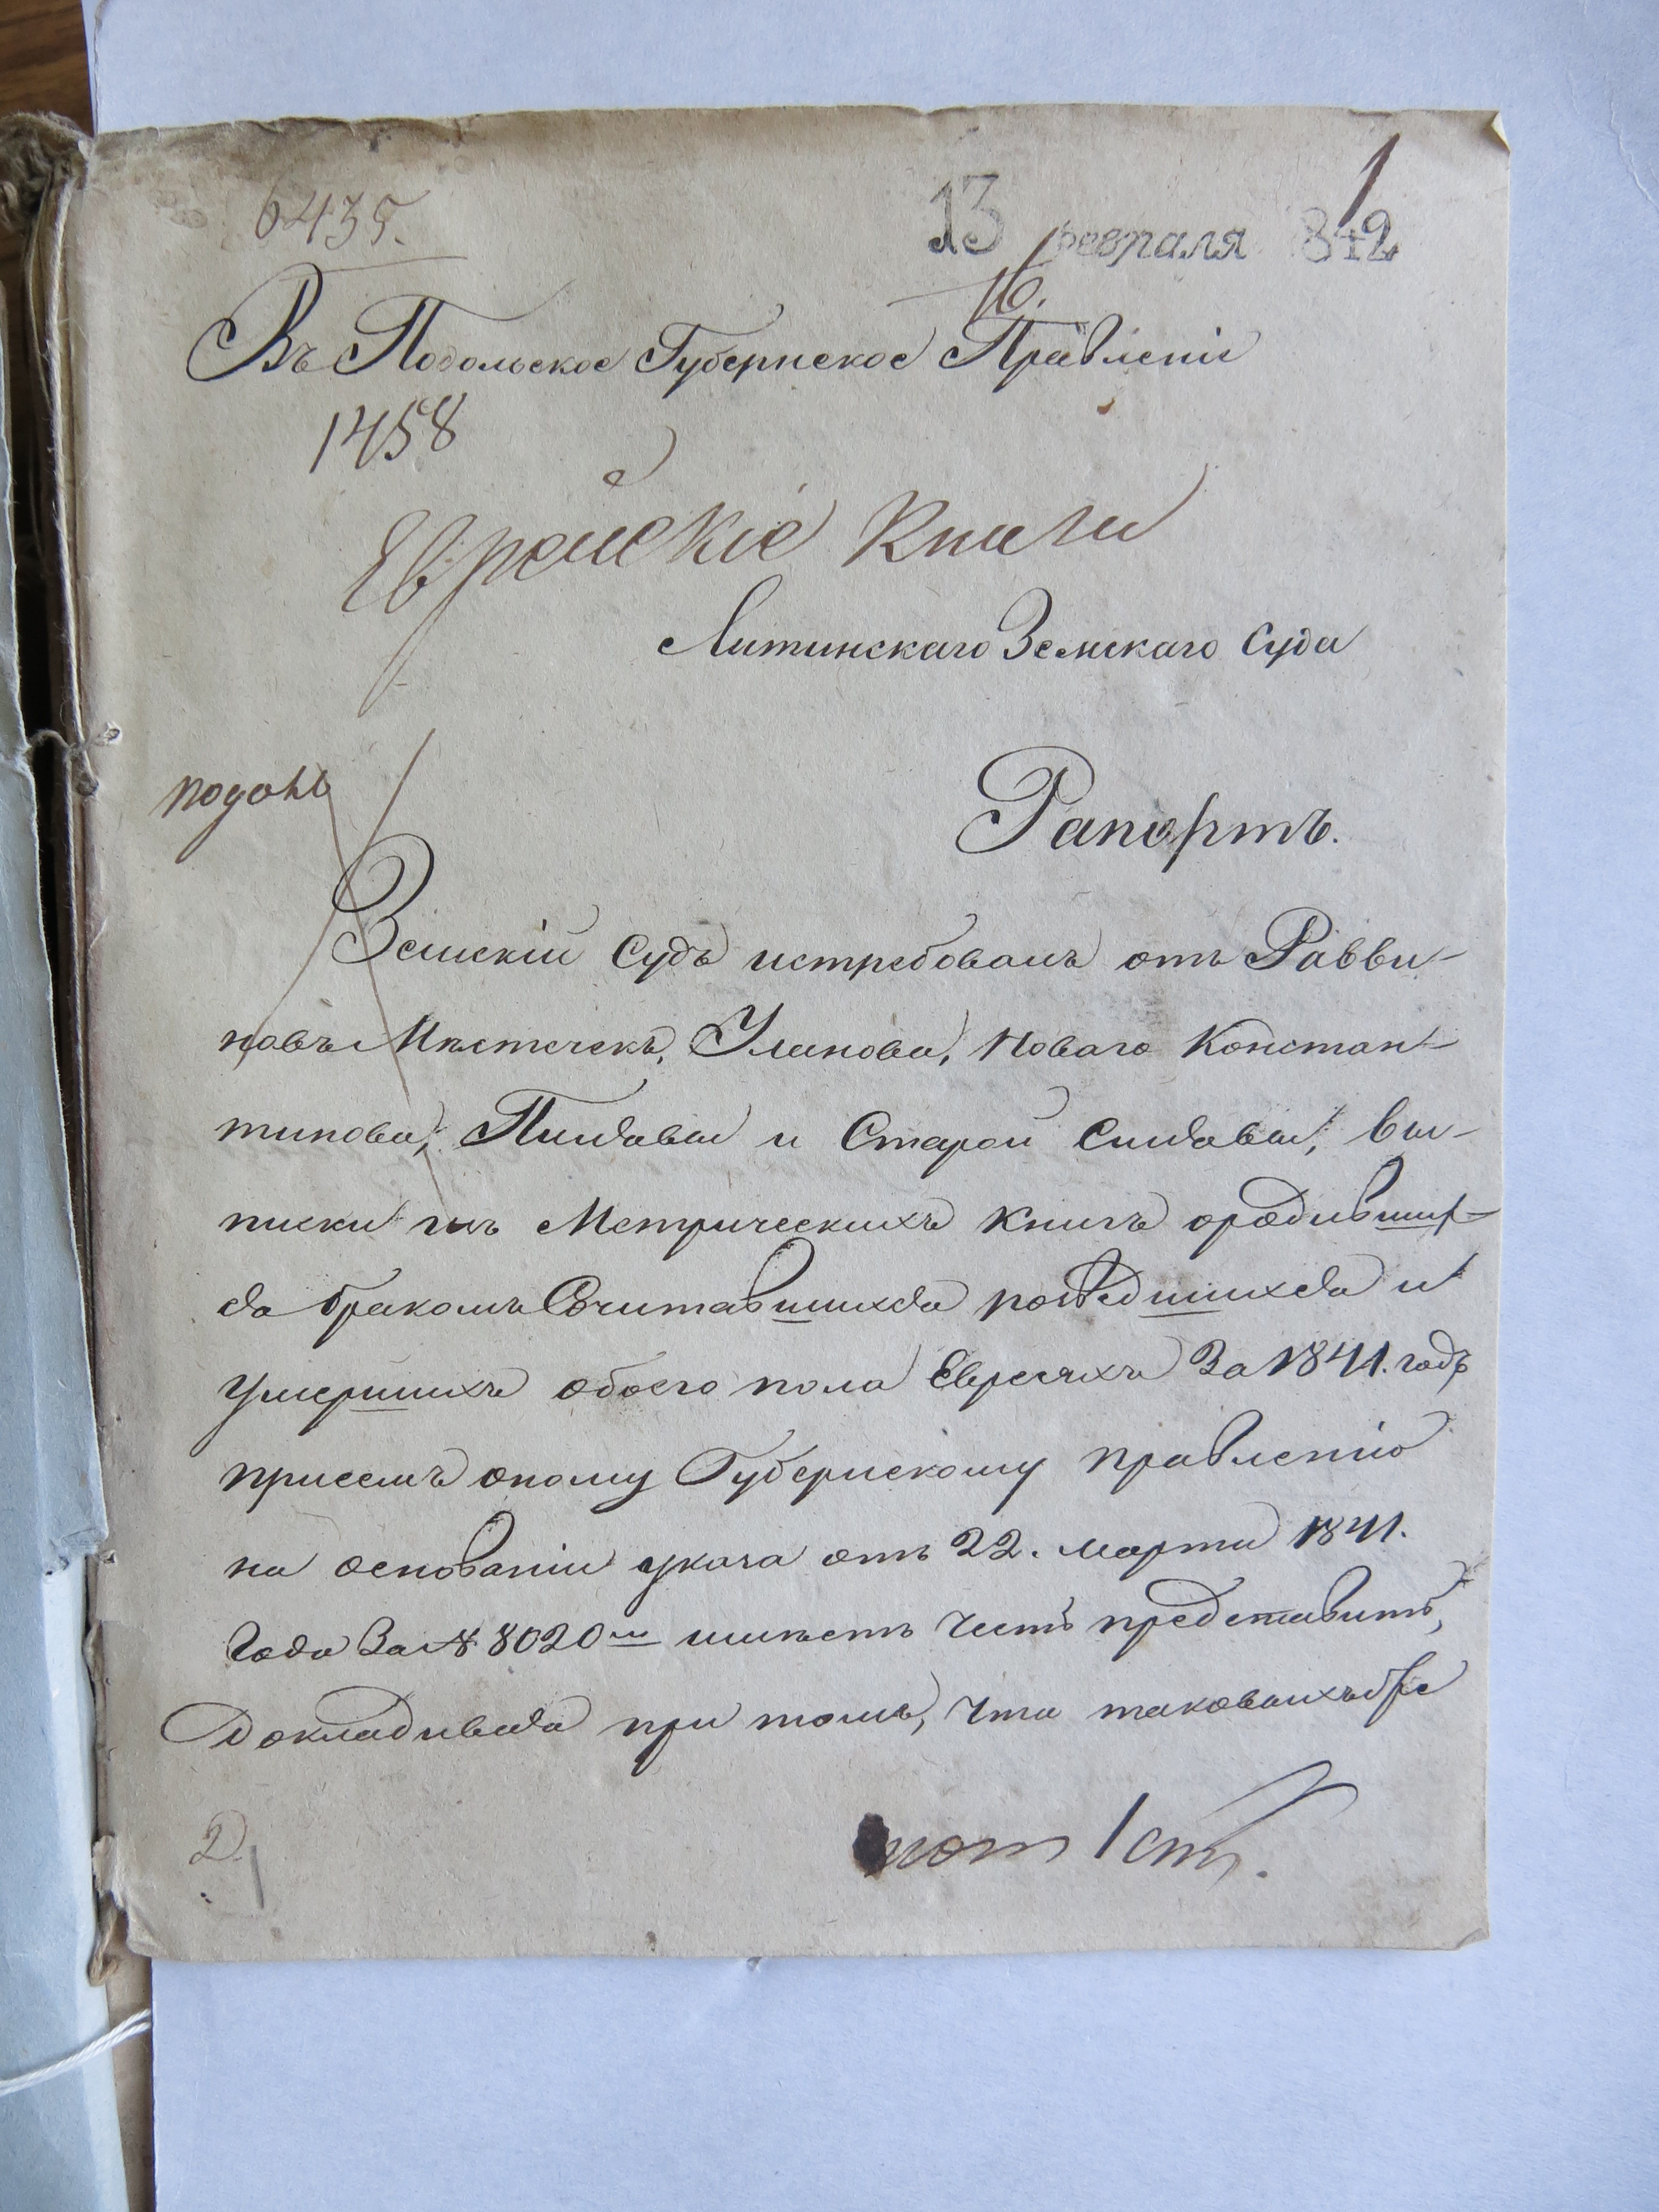 1
6435.
13 февраля 842
16.
Въ Подольское Губернское Правленіе
1458
Еврейскіе Книги
Литинскаго Земскаго Суда
Рапортъ.
Земскій Судъ истребовавъ отъ Равви-
новъ Мѣстечекъ, Уланова, Новаго Констан-
тинова, Пилявы и Старой Синявы, вы-
писки изъ Метрическихъ книгъ о родивших-
ся бракомъ Сочитавшихся розведшихся и
умершихъ обоего пола Евреяхъ За 1841. годъ
присемъ оному Губернскому правленію
на основаніи указа отъ 22. марта 1841.
Года За № 8020м имѣетъ Честь представить,
Докладывая при томъ, Что таковыхъ
2.